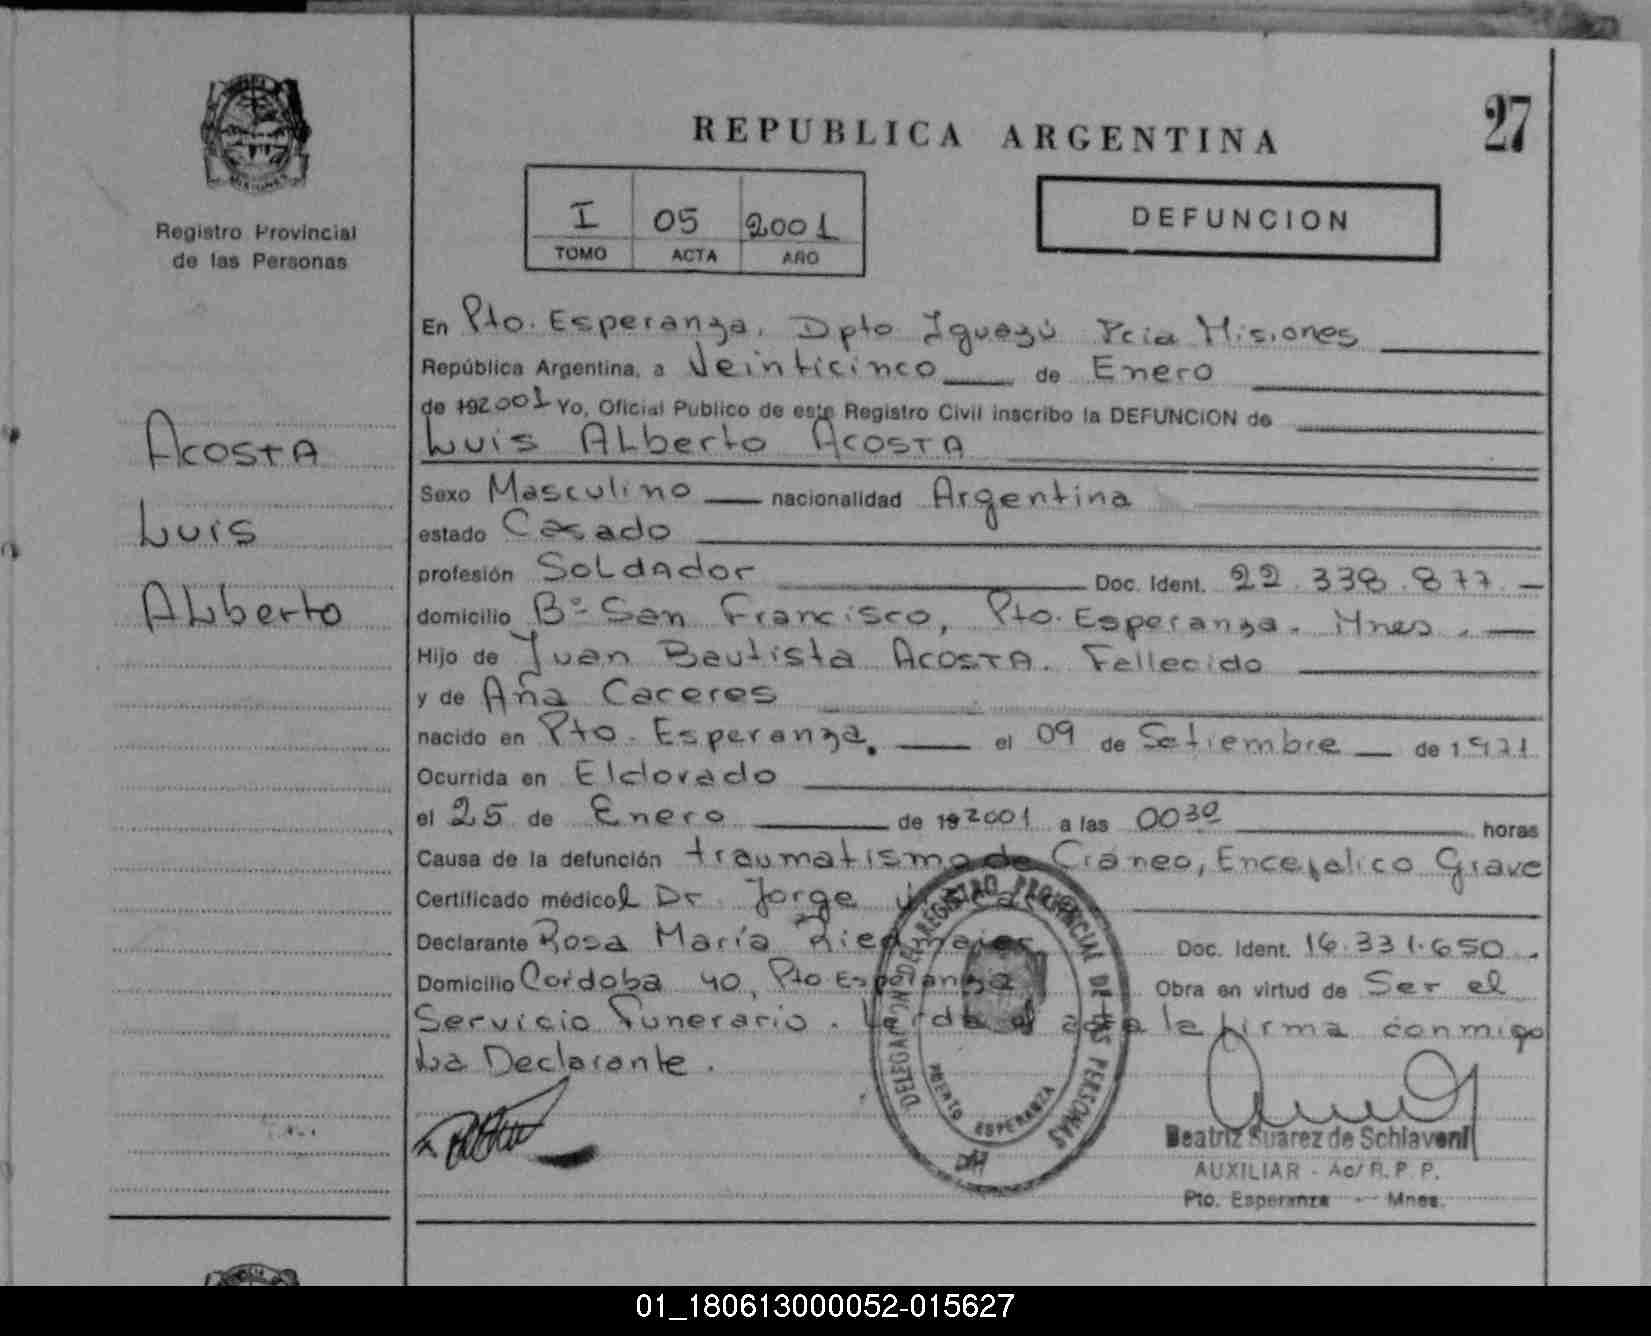 27
REPUBLICA ARGENTINA
I 05 2001
TOMO ACTA AÑO
DEFUNCION
Registro Provincial
de las Personas
ACOSTA
Luis
ALberto
En Pto. Esperanza, Dpto Iguazú Pcia Misiones
República Argentina, a Veinticinco de Enero
de 192001 Yo, Oficial Publico de este Registro Civil inscribo la DEFUNCION de
Luis ALberto ACOSTA
Sexo Masculino nacionalidad Argentina
estado Casado
profesión SoLdador Doc. Ident. 22.338.877.
domicilio Bº San Francisco, Pto. Esperanza. Mnes.
Hijo de Juan Bautista ACOSTA. Fallecido
y de Aña Caceres
nacido en Pto. Esperanza. el 09 de Setiembre de 1971
Ocurrida en Eldorado
el 25 de Enero de 192001 a las 0030 horas
Causa de la defunción traumatismo de Cráneo, Encefalico Grave
Certificado médicol Dr. Jorge
Declarante Rosa María Riedmaier Doc. Ident. 16.331.650.
Domicilio Cordoba 40, Pto Esperanza Obra en virtud de Ser el
Servicio Funerario. Leída el acta la firma conmigo
La Declarante.
DELEGACION DEL REGISTRO PROVINCIAL DE LAS PERSONAS
PUERTO ESPERANZA
Beatriz Suarez de Schiavoni
AUXILIAR - Ac/ R. P. P.
Pto. Esperanza - Mnes.
01_180613000052-015627